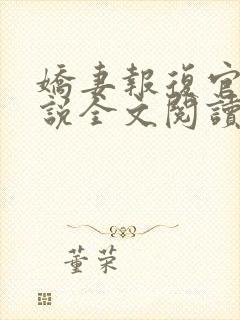 嬌妻報復官
說全文閱讀
董荣